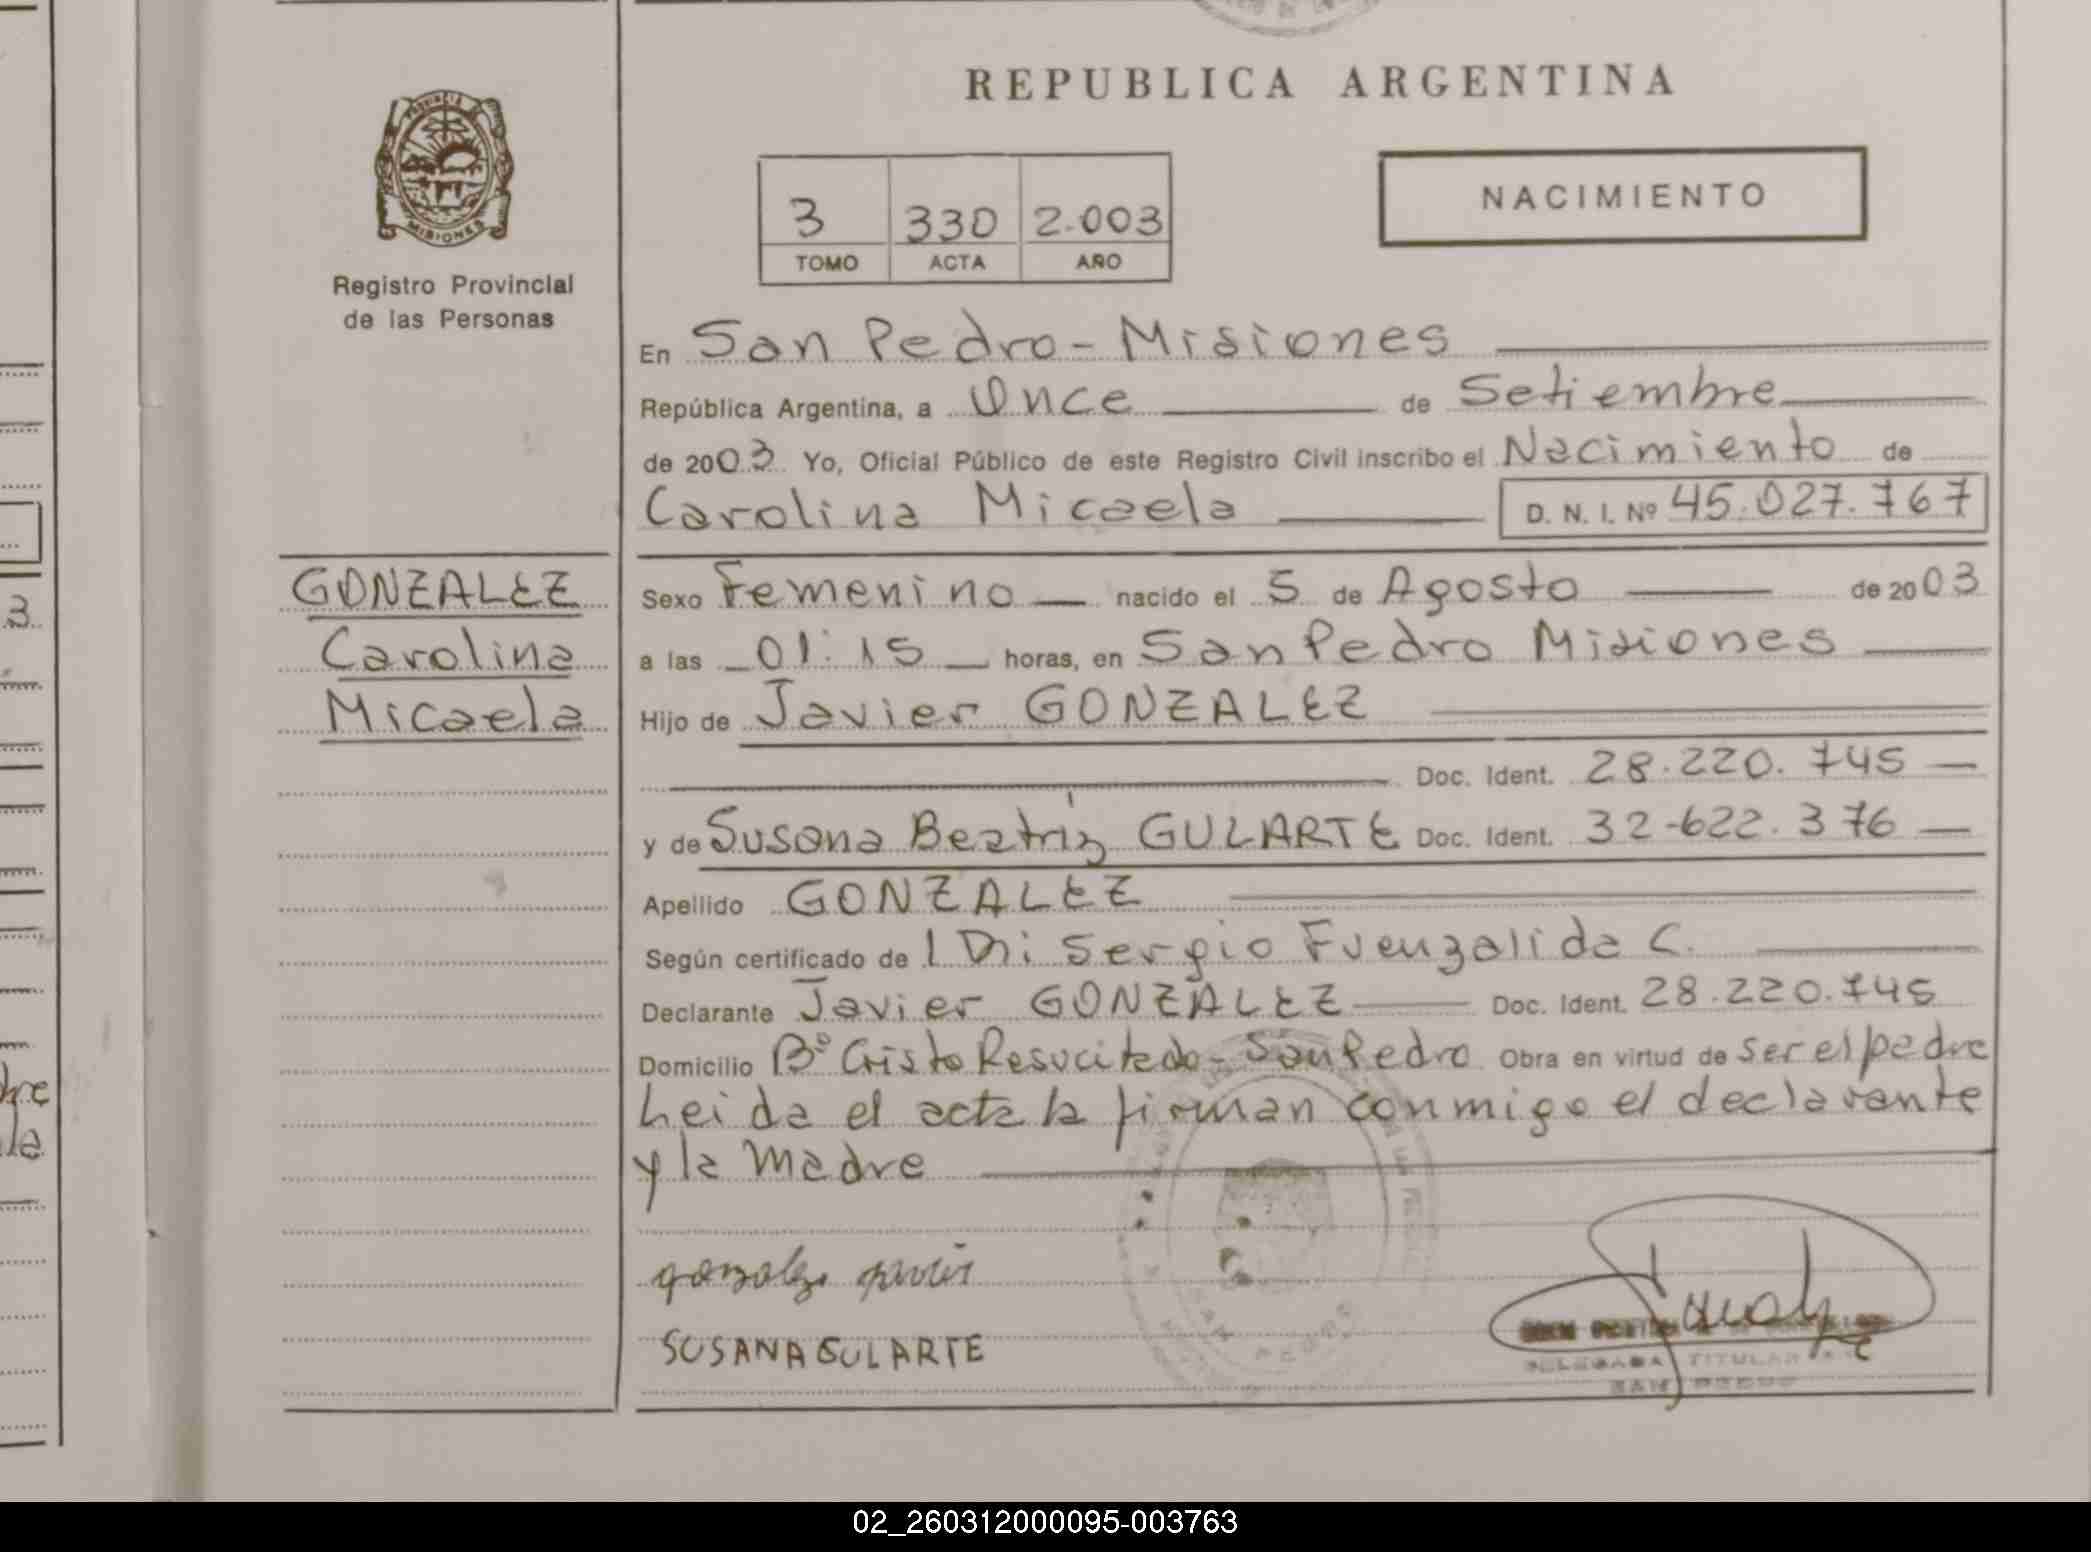 REPUBLICA ARGENTINA
PROVINCIA
MISIONES
Registro Provincial
de las Personas
3 330 2.003
TOMO ACTA AÑO
NACIMIENTO
En San Pedro - Misiones
República Argentina, a Once de Setiembre
de 2003 Yo, Oficial Público de este Registro Civil inscribo el Nacimiento de
Carolina Micaela D. N. I. Nº 45.027.767
GONZALEZ
Carolina
Micaela
Sexo Femenino nacido el 5 de Agosto de 2003
a las 01:15 horas, en San Pedro Misiones
Hijo de Javier GONZALEZ
Doc. Ident. 28.220.745
y de Susana Beatriz GULARTE Doc. Ident. 32-622.376
Apellido GONZALEZ
Según certificado de Sergio Fuenzalida C.
Declarante Javier GONZALEZ Doc. Ident. 28.220.745
Domicilio Bº Cristo Resucitado - San Pedro Obra en virtud de ser el padre
Leida el acta la firman conmigo el declarante
y la Madre
gonzalez javier
SUSANA GULARTE
DELEGADA TITULAR
SAN PEDRO
02_260312000095-003763